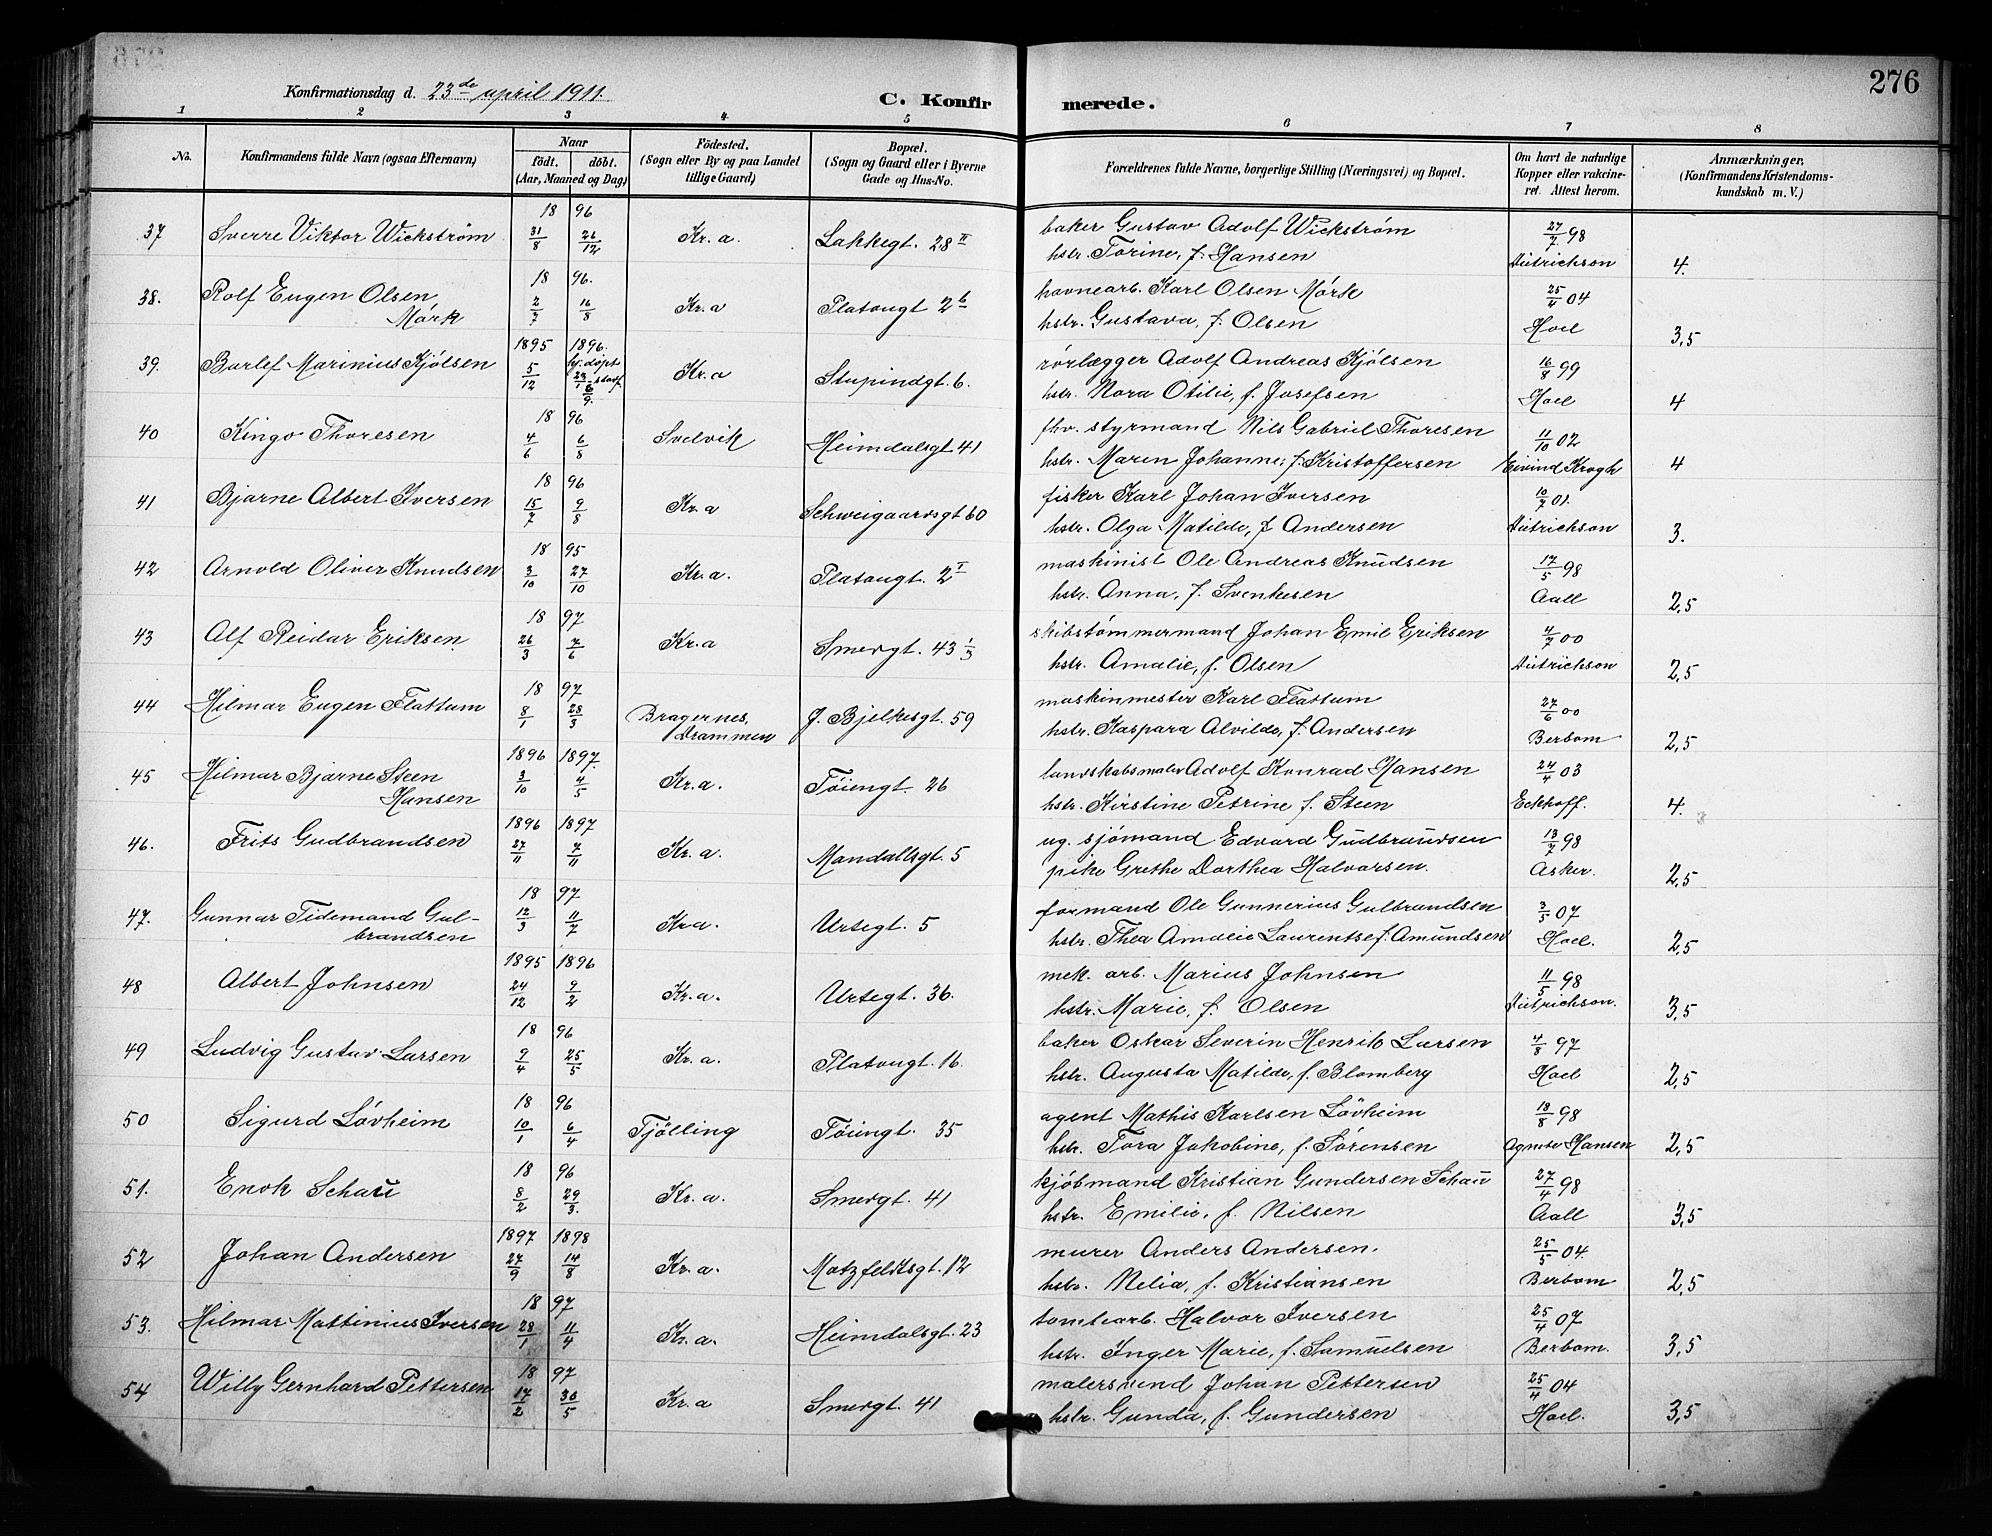 276
Konfirmationsdag d. 23de april 1911.
C. Konfirmerede.
1 2 3 4 5 6 7 8
No. | Konfirmandens fulde Navn (ogsaa Efternavn) | Naar født. døbt. (Aar, Maaned og Dag) | Fødested. (Sogn eller By og paa Landet tillige Gaard) | Bopæl. (Sogn og Gaard eller i Byerne Gade og Hus-No. | Forældrenes fulde Navne, borgerlige Stilling (Næringsvei) og Bopæl. | Om havt de naturlige Kopper eller vaccineret. Attest herom. | Anmærkninger, (Konfirmandens Kristendomskundskab m. V.)
37 Sverre Viktor Wickström 1896 31/8 26/12 Kr.a. Lakkegt. 28 II baker Gustav Adolf Wickström 27/7 98
hstr. Torine, f. Hansen Dietrichson 4.
38. Rolf Eugen Olsen Mørk 1896. 2/7 16/8 Kr.a Platougt 2b havnearb. Karl Olsen Mørk 25/4 04
hstr. Gustava, f. Olsen Hoel 3,5
39. Barlef Marinius Kjølsen 1895 5/12 1896. hj. døpt 23/1 stadf 6/9. Kr.a Stupindgt. 6. rørlægger Adolf Andreas Kjølsen 16/8 99
hstr. Nora Otilie, f. Josefsen Hoel 4
40 Kingo Thoresen 1896 4/6 6/8 Svelvik Heimdalsgt 41 fhv. styrmand Nils Gabriel Thoresen 11/10 02
hstr. Maren Johanne, f. Kristoffersen Eivind Krogh 4
41 Bjarne Albert Iversen 1896 15/7 9/8 Kr.a Schweigaardsgt 60 fisker Karl Johan Iversen 10/7 01.
hstr. Olga Matilde, f Andersen Dietrichson 3.
42 Arnold Oliver Knudsen 1895 3/10 27/10 Kr.a. Platougt. 2 I maskinist Ole Andreas Knudsen 17/5 98
hstr. Anna, f. Svenkesen Aall 2,5
43 Alf Reidar Eriksen 1897 26/3 7/6 Kr.a Smergt. 43 1/3 skibstømmermand Johan Emil Eriksen 4/7 00
hstr. Amalie, f. Olsen Dietrichson 2,5
44 Hilmar Eugen Flattum 1897 8/1 28/3 Bragernes, Drammen J. Bjelkesgt. 59 maskinmester Karl Flattum 27/6 00
hstr. Kaspara Alvilde, f. Andersen Berbom 2,5
45 Hilmar Bjarne Steen Hansen 1896 3/10 1897. 4/5 Kr.a. Tøiengt. 26 landskabsmaler Adolf Konrad Hansen 24/4 03
hstr. Kirstine Petrine f. Steen Eckhoff. 4.
46. Frits Gudbrandsen 1896 27/11 1897 7/11 Kr.a. Mandallsgt. 5 ug. sjømand Edvard Gudbrandsen 13/7 98
pike Grethe Dorthea Halvorsen. Asker. 2,5
47. Gunnar Tidemand Gulbrandsen 1897 12/3 11/7 Kr.a. Urtegt. 5 formand Ole Gunnerius Gulbrandsen 3/5 07
hstr. Thea Amalie Laurentse f. Amundsen Hoel. 2,5
48 Albert Johnsen 1895 24/12 1896 9/2 Kr.a. Urtegt. 36. mek. arb. Marius Johnsen 11/5 98
hstr. Marie, f. Olsen Dietrichson. 3,5
49 Ludvig Gustav Larsen 1896 9/4 25/5 Kr.a. Platougt. 16. baker Oskar Severin Henrik Larsen 4/8 97
hstr. Augusta Matilde, f. Blomberg Hoel 2,5
50 Sigurd Løvheim 1896 10/1 6/4 Tjølling Tøiengt. 35 agent Mathis Karlsen Løvheim 18/8 98
hstr. Tora Jakobine, f. Sørensen Agnete Hansen 2,5
51. Enok Schau 1896 8/2 29/3. Kr.a. Smergt. 41 kjøbmand Kristian Gundersen Schau 27/4 98
hstr. Emilie, f. Nilsen Aall 3,5
52 Johan Andersen 1897 27/9 1898 14/8 Kr.a. Motzfeldtsgt. 12 murer Anders Andersen. 25/5 04.
hstr. Nelia, f. Kristiansen Berbom 2,5
53. Hilmar Mattinius Iversen 1897 28/1 11/4 Kr.a. Heimdalsgt. 23 tomtearb. Halvor Iversen 25/4 07
hstr. Inger Marie, f. Samuelsen Berbom. 3,5
54 Willy Gernhard Pettersen 1897 17/2 30/5 Kr.a Smergt. 41 malersvend Johan Pettersen 25/4 04
hstr. Gunda, f. Gundersen Hoel. 3,5